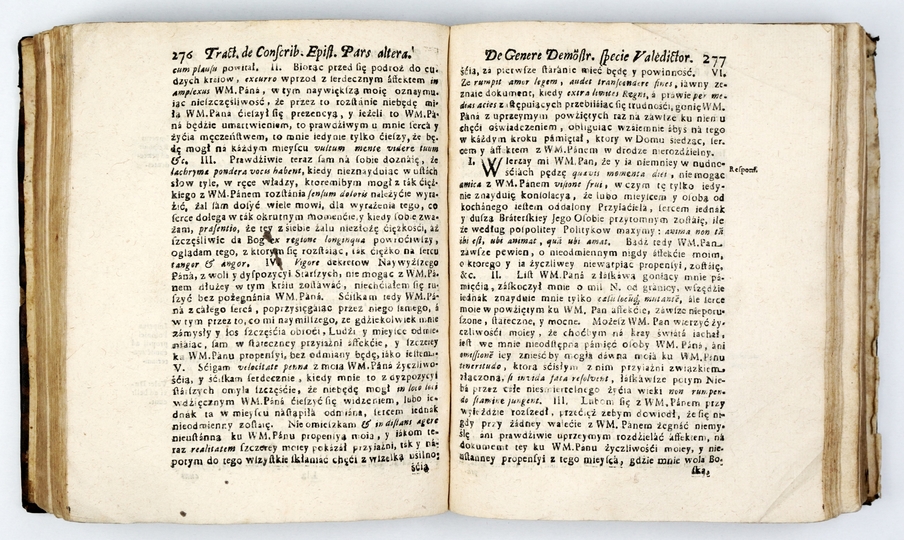 276 Tract. de Conscrib. Epist. Pars altera.
cum plausu powitał. II. Biorąc przed się podroż do cu-
dzych kráiow, excurro wprzod z serdecznym áffektem in
amplexus WM. Páná, w tym naywiększą moię oznaymu-
iąc nieszczęśliwość, że przez to rozstánie niebędę mi-
ła WM. Paná ćieszył się prezencyą, y ieżeli to WM. Pá-
ná będzie umartwieniem, to prawdźiwym u mnie serca y
życia męczeństwem, to mnie iedynie tylko ćieszy, że bę-
dę mogł na káżdym mieyscu vultum mente videre tuum
&c. III. Prawdźiwie teraz sam ná sobie doznáię, że
lachryma pondera vocis habent, kiedy nieznayduiąc w ustách
słow tyle, w ręce władzy, ktoremibym mogł z ták ćięż-
kiego z WM. Pánem rozstánia sensum doloris náleżyćie wyrá-
źić, żal sam dosyć wiele mowi, dla wyrażenia tego, co
serce dolega w ták okrutnym momenćie, y kiedy sobie zwa-
żam, prasentio, że tey z siebie żalu niezłożę ćięszkośći, áż
szczęśliwie da Bog ex regione longinqua powroćiwszy,
oglądam tego, z ktorym się rozstáiąc, ták ćięszko ná sercu
tangor & angor. IV. Vigore dekretow Naywyższego
Páná, z woli y dyspozycyi Stárszych, nie mogąc z WM. Pá-
nem dłużey w tym kráiu zostáwáć, niechćiałem się ru-
szyć bez pożegnánia WM. Páná. Sćiskam tedy WM. Pá-
ná z całego sercá, poprzysięgáiąc przez niego samego, á
w tym przez to, co mi naymilszego, że gdziekolwiek mnie
zámysły y los szczęśćia obroći, Ludźi y mieysce odmie-
niáiąc, sam w státeczney przyiáźni áffekćie, y szczerey
ku WM. Pánu propensyi, bez odmiany będę, iáko iestem.
V. Sćigam velocitate penna z moią WM. Páná życzliwo-
śćią, y śćiskam serdecznie, kiedy mnie to z dyzpozycyi
stárszych omyla szczęśćie, że niebędę mogł in loco loci
wdźięcznym WM. Páná ćieszyć się widzeniem, lubo ie-
dnák tá w mieyscu nástąpiłá odmiáná, sercem iednák
nieodmienny zostáię. Nie omieszkam & in distans agere
nieustánną ku WM. Pánu propensyą moią, y iákom te-
raz realitatem szczerey moiey pokázał przyiáźni, ták y ná-
potym do tego wszystkie skłániáć chęći z wszelką usilno-
śćią
De Genere Demõstr. specie Valedictor. 277
śćią, zá pierwsze stáránie mieć będę y powinność. VI.
Ze rumpit amor legem, audet transcendere fines, iáwny ze-
znáie dokument, kiedy extra limites Regni, á práwie per me-
dias acies zástępuiących przebiiáiąc się trudnośći, gonię WM.
Páná z uprzeymym powźiętych raz ná záwsze ku niemu
chęći oświádczeniem, obliguiąc wzáiemnie ábyś ná tego
w káżdym kroku pámiętał, ktory w Domu śiedząc, ser-
cem y áffektem z WM. Pánem w drodze nierozdźielny.
I. WIerzay mi WM. Pan, że y ia niemniey w nudno-
śćiách pędzę quavis momenta diei, niemogąc
Respons.
amica z WM. Pánem visione frui, w czym tę tylko iedy-
nie znáyduię konsolacyą, że lubo mieyscem y osobą od
kochánego iestem oddalony Przyiaćielá, sercem iednák
y duszą Bráterskiey Jego Osobie przytomnym zostáię, ile
że według pospolitey Politykow maxymy: anima non tã
ibi est, ubi animat, quã ubi amat. Bądź tedy WM. Pan
záwsze pewien, o nieodmiennym nigdy áffekćie moim,
o ktorego y ia życzliwey niewątpiąc propensyi, zostáię,
&c. II. List WM. Páná z łáskáwą goniący mnie pá-
mięćią, záskoczył mnie o mil N. od gránicy, wszędźie
iednák znáyduie mnie tylko cœli locúq́; mutantẽ, ále serce
moie w powźiętym ku WM. Pan áffekćie, záwsze nieporu-
szone, státeczne, y mocne. Możesz WM. Pan wierzyć ży-
czliwośći moiey, że choćbym ná kray świátá iáchał,
iest we mnie nieodstępna pámięć osoby WM. Páná, áni
omissionẽ icy znieść by mogłá dáwná moiá ku WM. Pánu
teneritudo, ktorá śćisłym z nim przyiáźni związkiem
złączoná, si invida fata resolvent, łáskáwsze potym Nie-
bá przez cáłe nieśmiertelnego życia wieki non rumpen-
do stamine jungent. III. Lubom się z WM. Pánem przy
wyieźdźie rozszedł, przećięż żebym dowiodł, że się ni-
gdy przy żádney walećie z WM. Pánem żegnáć niemy-
ślę áni práwdźiwie uprzeymym rozdźieláć áffektem, ná
dokument tey ku WM. Pánu życzliwośći moiey, y nie-
ustánney propensyi z tego mieyscá, gdźie mnie wola Bo-
ska,